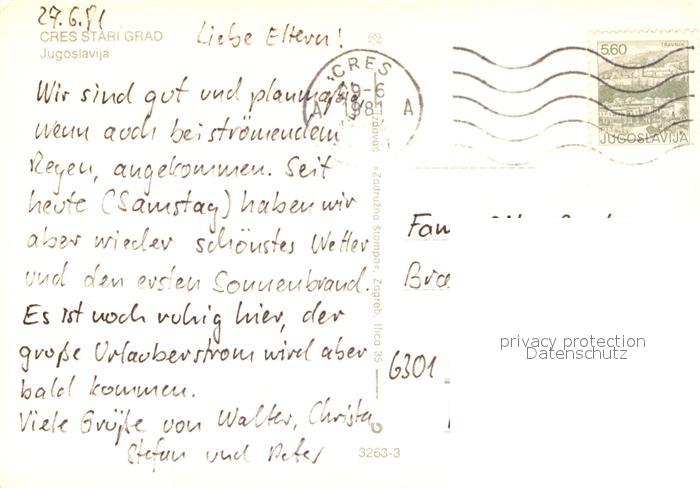 27.6.81
CRES STARI GRAD
Jugoslavija
Liebe Eltern!
Wir sind gut und planmäßig,
wenn auch bei strömendem
Regen, angekommen. Seit
heute (Samstag) haben wir
aber wieder schönstes Wetter
und den ersten Sonnenbrand.
Es ist noch ruhig hier, der
große Urlauberstrom wird aber
bald kommen.
Viele Grüße von Walter, Christa
Stefan und Peter
3263-3
Zadružna štampa, Zagreb, Ilica 35
CRES
1981
A A
5,60
TRAVNIK
JUGOSLAVIJA
Fam
6301
privacy protection
Datenschutz